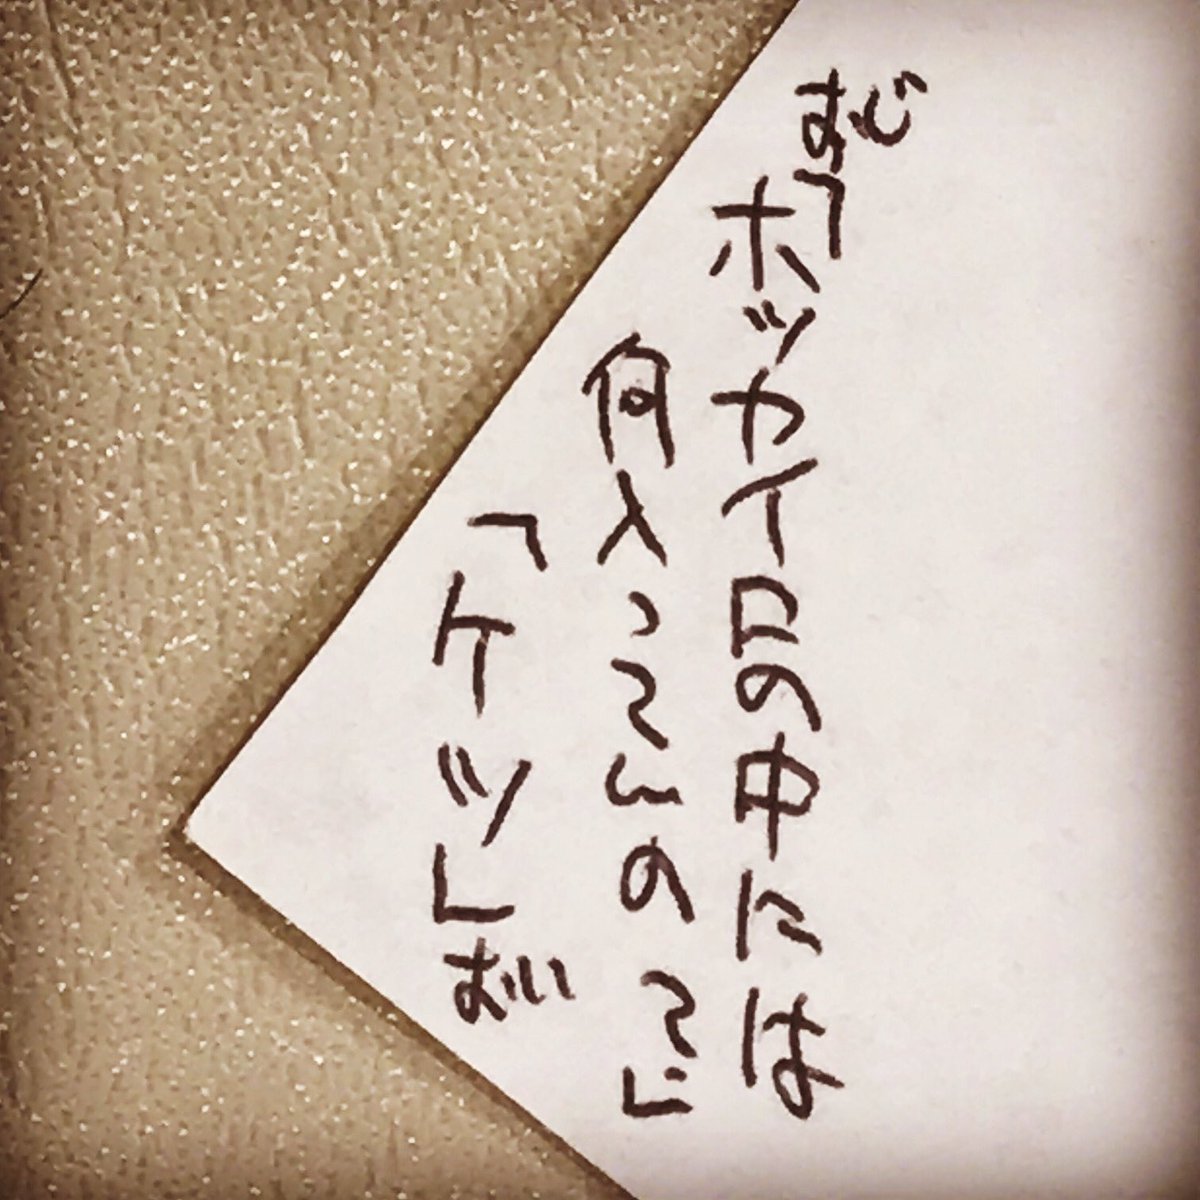 おじ「ホッカイロの中には
何入ってんの?」
「ケツ」おい